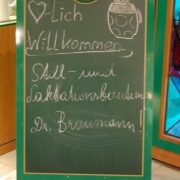 ♡-Lich
Willkommen
Still- und
Laktationsberaterin
Dr. Braumann!